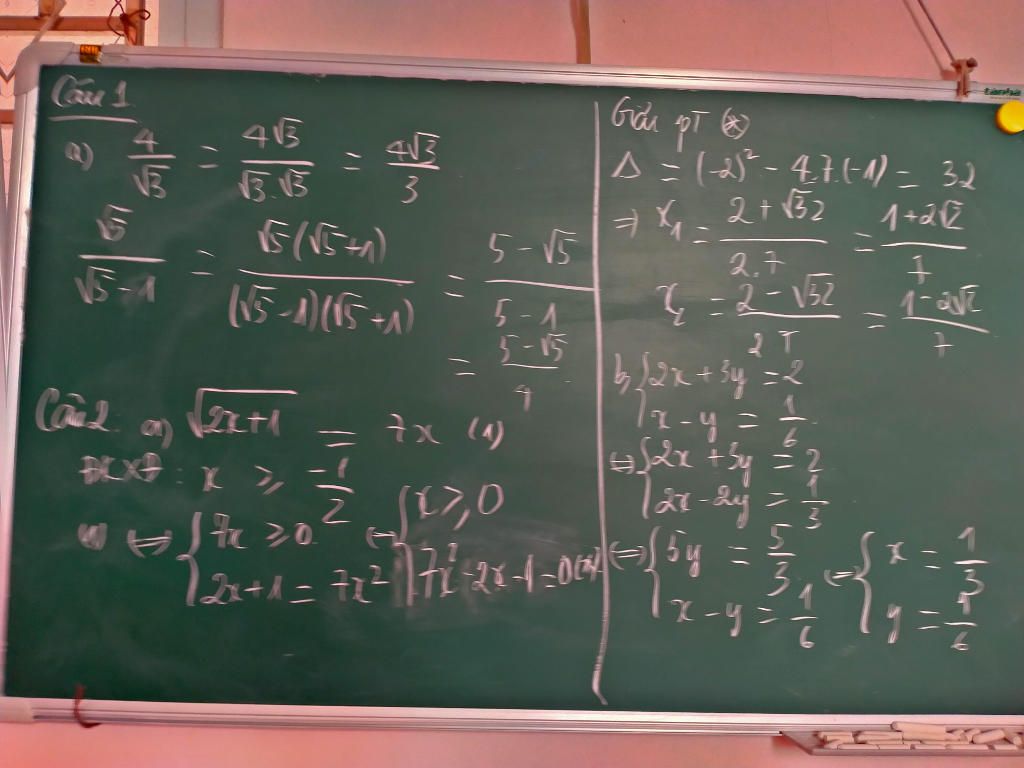 Câu 1
a) 4/√3 = 4√3/√3.√3 = 4√3/3
√5/√5-1 = √5(√5+1)/(√5-1)(√5+1) = 5-√5/5-1
= 5-√5/4
Câu 2 a) √2x+1 = 7x (1)
ĐKXĐ: x ≥ -1/2
(1) ⇔ { 7x ≥ 0 ; 2x+1 = 7x² ⇔ { x ≥ 0 ; 7x²-2x-1=0 (*)
Giải pT (*)
Δ = (-2)² - 4.7.(-1) = 32
⇒ x₁ = 2+√32/2.7 = 1+2√2/7
x₂ = 2-√32/2.7 = 1-2√2/7
b, { 2x+3y = 2 ; x-y = 1/6
⇔ { 2x+3y = 2 ; 2x-2y = 1/3
⇔ { 5y = 5/3 ; x-y = 1/6 ⇔ { x = 1/3 ; y = 1/6